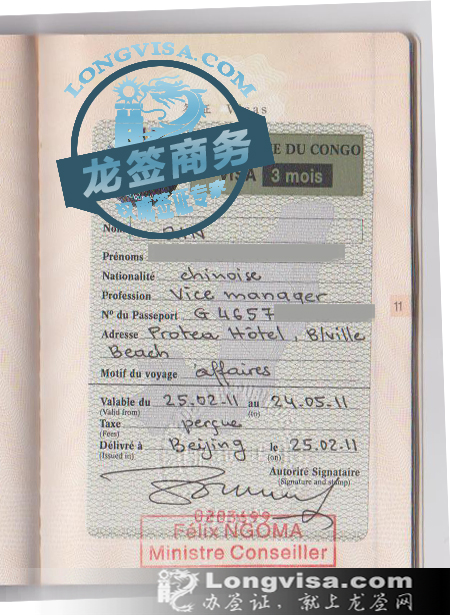 LONGVISA.COM
龙签商务
E DU CONGO
VISA 3 mois
Nom
Prénoms
Nationalité chinoise
Profession Vice manager
Nº du Passeport G 4657
11
Adresse Protea Hôtel, B/ville
Beach
Motif du voyage affaires
Valable du 25.02.11 au 24.05.11
(Valid from) (to)
Taxe perçue
(Fees)
Délivré à Beijing le 25.02.11
(Issued in) (on)
Autorité Signataire
(Signature and stamp)
0203699
Félix NGOMA
Ministre Conseiller
Longvisa.com
办签证，就上龙签网